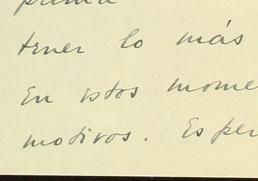 tener lo más
En estos mome
motivos. Espe